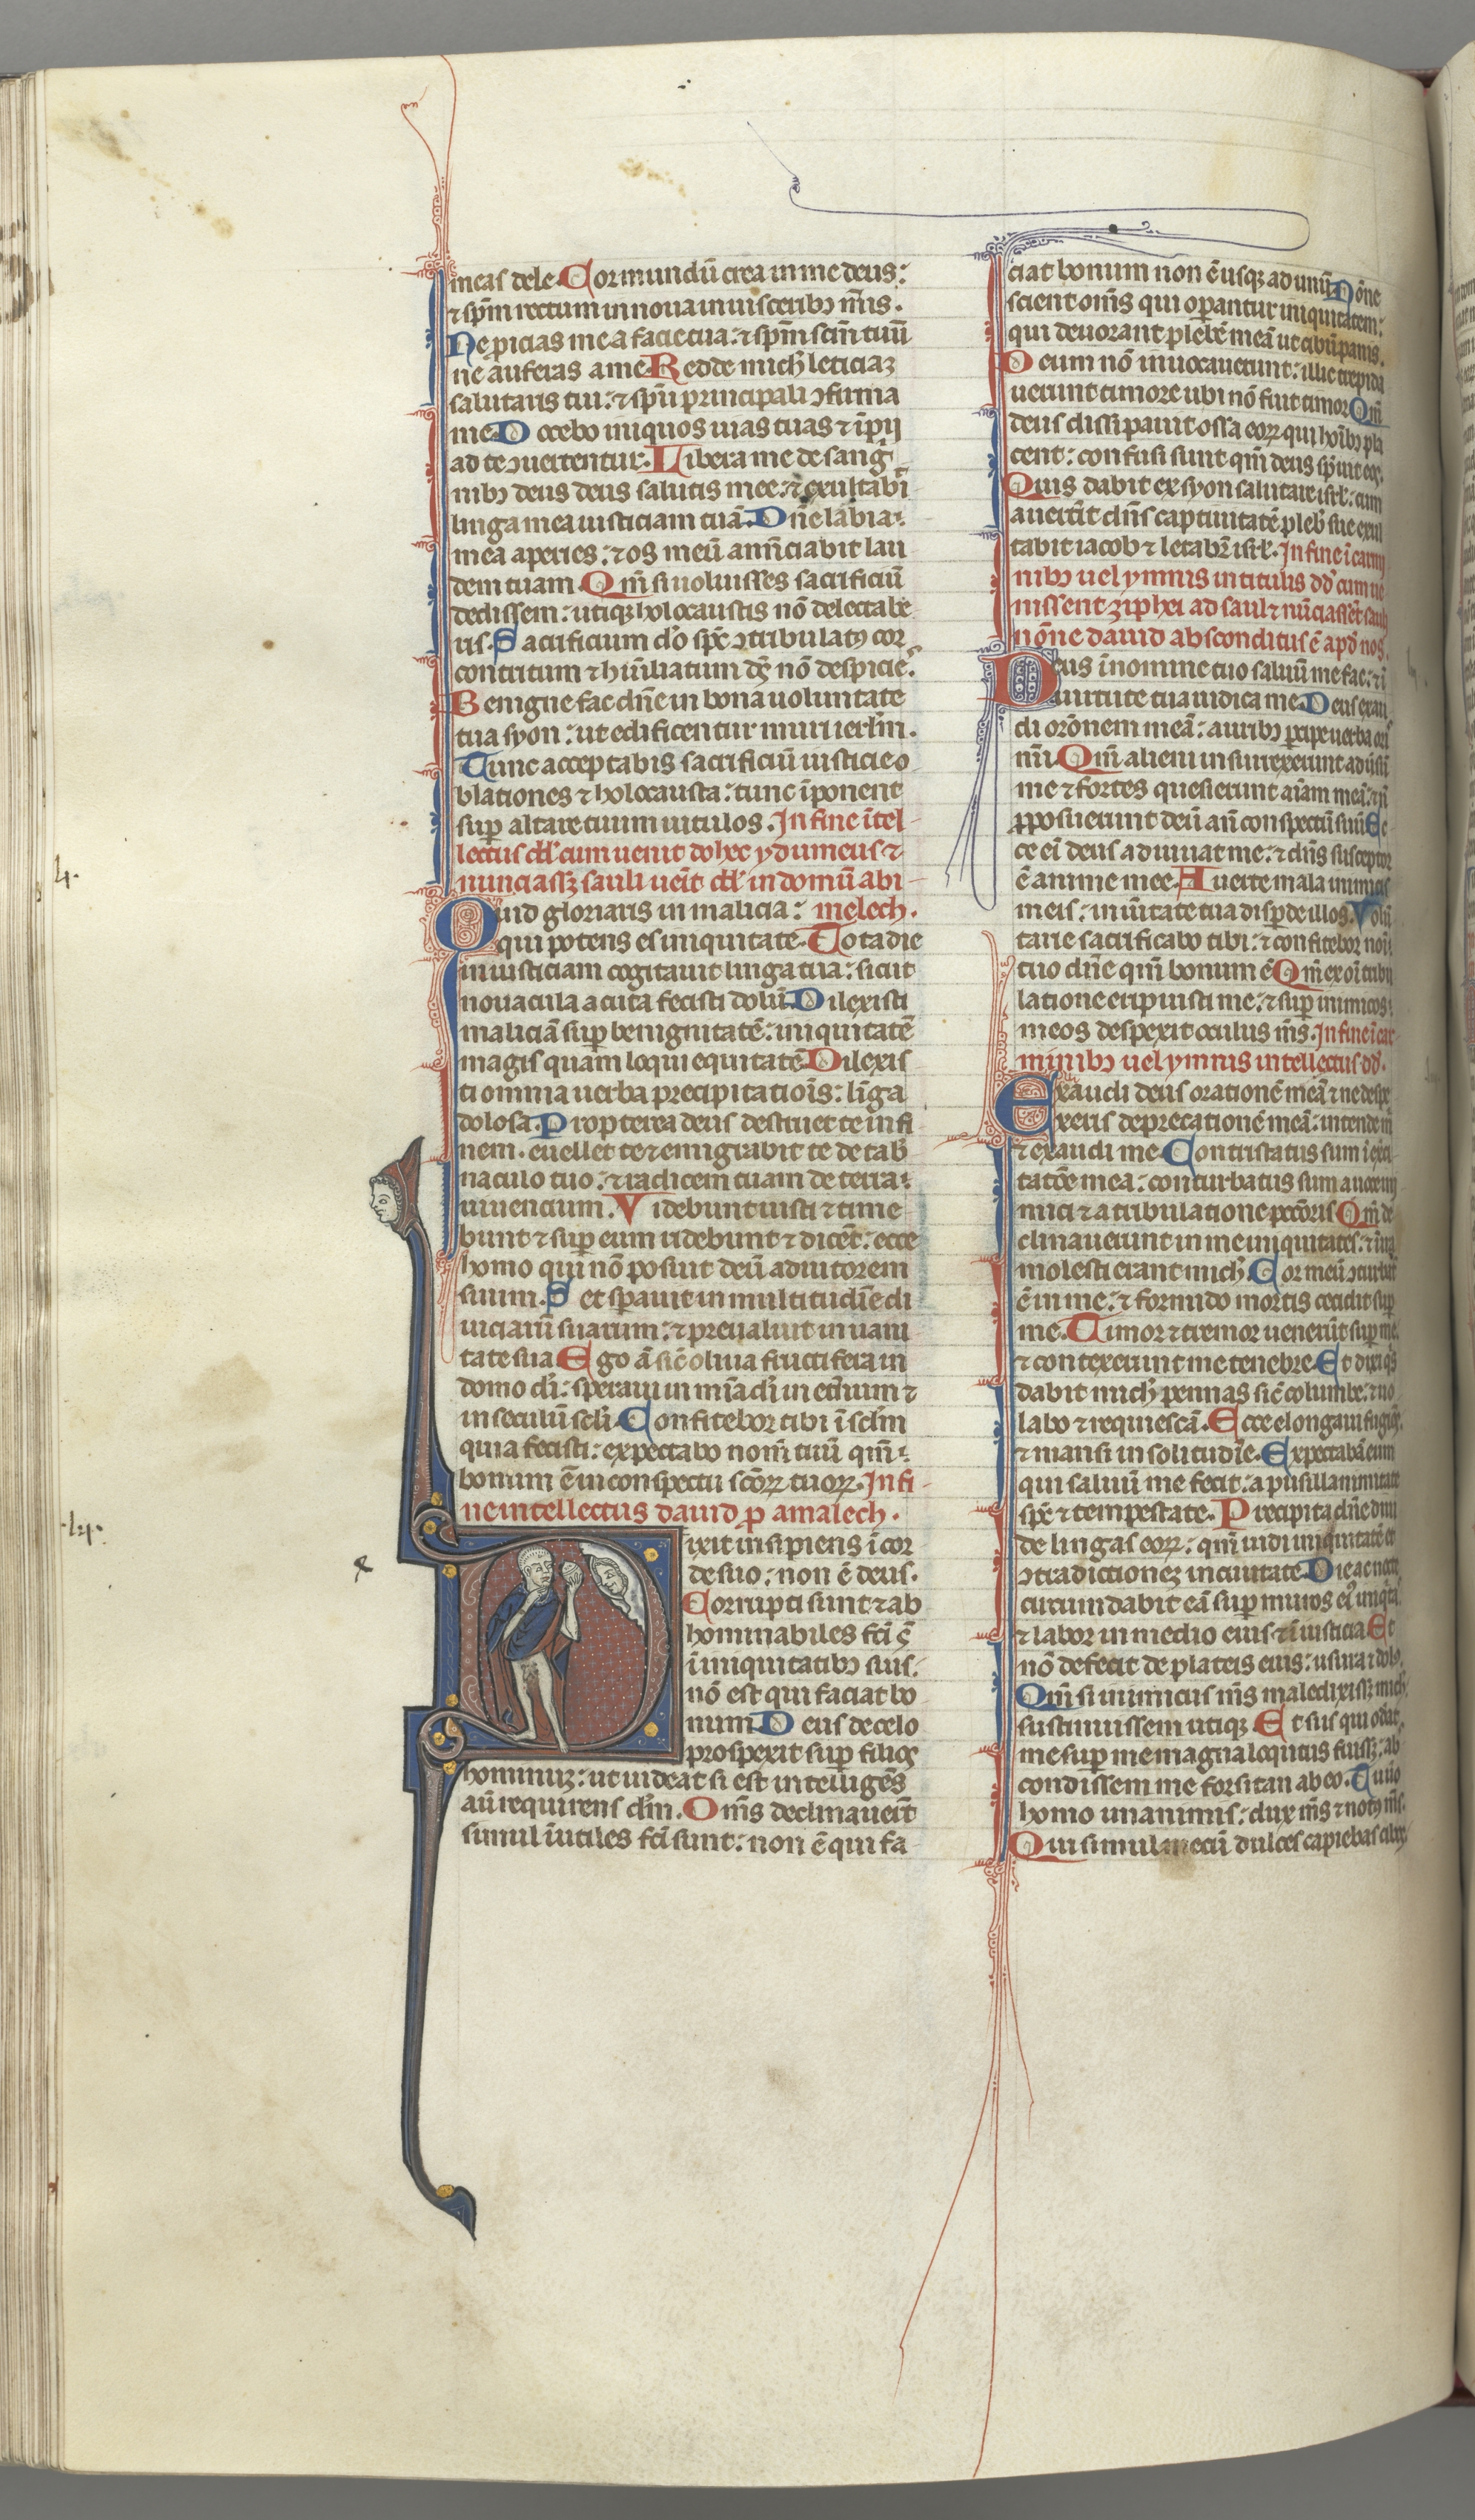 meas dele. Cor mundū crea in me deus:
⁊ sp̄m rectum innoua in uisceribꝫ m̄is.
Ne ꝓicias me a facie tua: ⁊ sp̄m sc̄m tuū
ne auferas a me. Redde mich̄ leticiaꝫ
salutaris tui: ⁊ sp̄u principali ꝯfirma
me. Docebo iniquos uias tuas ⁊ īpij
ad te ꝯuertentur. Libera me de sang̾
nibꝫ deus deus salutis mee: ⁊ exultabī
linga mea iusticiam tuā. Dn̄e labia
mea aperies: ⁊ os meū annc̄iabit lau
dem tuam. Qm̄ si uoluisses sacrificiū
dedissem: utiqꝫ holocaustis nō delectabe
ris. Sacrificium do sp̄c ꝯtribulatꝰ cor
contritum ⁊ hūiliatum dꝫ nō despicies
Benigne fac dn̄e in bona uoluntate
tua syon: ut edificentur muri ierlm̄.
Tunc acceptabis sacrificiū iusticie o
blationes ⁊ holocausta: tunc īponent
suꝑ altare tuum uitulos. In fine ītel
lectus dd̄ cum uenit dohec ydumeus ⁊
nunciassꝫ sauli uēit dd̄ in domū abi
Quid gloriaris in malicia: melech.
qui potens es iniquitate. Tota die
iniusticiam cogitauit linga tua: sicut
nouacula acuta fecisti dolū. Dilexisti
maliciā suꝑ benignitatē: iniquitatē
magis quam loqui equitatē. Dilexis
ti omnia uerba precipitatiōis: līga
dolosa. Propterea deus destruet te in fi
nem. euellet te ⁊ emigrabit te de tab̄
naculo tuo: ⁊ radicem tuam de terra
uiuencium. Videbunt iusti ⁊ time
bunt ⁊ suꝑ eum ridebunt ⁊ dicēt: ecce
homo qui nō posuit deū adiutorem
suum. Set sꝑauit in multitudīe di
uiciarū suarum: ⁊ preualuit in uani
tate sua. Ego ā sic̄ oliua fructifera in
domo di: speraui in mīa di in et̄num ⁊
in seculū scl̄i. Confitebor tibi ī scl̄m
quia fecisti: expectabo nom̄ tuū qm̄
bonum ē in conspectu scōꝝ tuoꝝ. In fi
ne intellectus dauid ꝓ amalech.
Dixit insipiens ī cor
de suo: non ē deus.
Corrupti sunt ⁊ ab
hominabiles fc̄i s̄
ī iniquitatibꝫ suis.
nō est qui faciat bo
num. Deus de celo
prospexit suꝑ filios
hominuꝫ: ut uideat si est intelligēs
aū requirens dm̄. Om̄s declinauer̄t
simul īutiles fc̄i sunt: non ē qui fa
ciat bonum non ē usqꝫ ad unū. Nōne
scient om̄s qui oꝑantur iniquitatem:
qui deuorant plebē meā ut cibū panis.
Deum nō inuocauerunt: illic trepida
uerunt timore ubi nō fuit timor. Qm̄
deus dissipauit ossa eoꝝ qui hoībꝫ pla
cent: confusi sunt qm̄ deus spreuit eos.
Quis dabit ex syon salutare isrl̄: cum
auert̄it dn̄s captiuitatē pleb̄ sue exul
tabit iacob ⁊ letabīt isrl̄. In fine ī carmi
nibꝫ uel ymnis in titulis dd̄ cum ue
nissent ziphei ad saul ⁊ nūciassēt saul
nōne dauid absconditus ē apd̄ nos.
Deus ī nomine tuo saluū me fac: ⁊ ī
uirtute tua iudica me. Deus exau
di orōnem meā: auribꝫ ꝑcipe uerba oris
m̄i. Qm̄ alieni insurrexerunt aduersū
me ⁊ fortes quesierunt aīam meā: ⁊ n̄
ꝓposuerunt deū an̄ conspectū suū. Ec
ce ei deus adiuuat me: ⁊ dn̄s susceptor
ē anime mee. Auerte mala inimicis
meis: in ūitate tua disꝑde illos. Volū
tarie sacrificabo tibi: ⁊ confitebor noīi
tuo dn̄e qm̄ bonum ē. Qm̄ ex oī tribu
latione eripuisti me: ⁊ suꝑ inimicos
meos despexit oculus m̄s. In fine ī car
minibꝫ uel ymnis intellectus dd̄.
Exaudi deus orationē meā ⁊ ne despe
xeris deprecationē meā: intende m̄
⁊ exaudi me. Contristatus sum ī exci
tatōe mea: conturbatus sum a uoce ini
mici ⁊ a tribulatione pecc̄oris. Qm̄ de
clinauerunt in me iniquitates: ⁊ ī ira
molesti erant mich̄. Cor meū ꝯturbat̄
ē in me: ⁊ formido mortis cecidit suꝑ
me. Timor ⁊ tremor uenerūt suꝑ me
⁊ contexerunt me tenebre. Et dixi qs̄
dabit mich̄ pennas sic̄ columbe: ⁊ uo
labo ⁊ requiescā. Ecce elongaui fugiēs
⁊ mansi in solitudīe. Expectabā eum
qui saluū me fecit: a pusillanimitate
sp̄c ⁊ tempestate. Precipita dn̄e diui
de lingas eoꝝ: qm̄ uidi iniquitatē ⁊
ꝯtradictioneꝫ in ciuitate. Die ac nocte
circumdabit eā suꝑ muros eiꝰ iniqtas
⁊ labor in medio eius ⁊ ī iusticia. Et
nō defecit de plateis eius: usura ⁊ dolꝰ.
Qm̄ si inimicus m̄s maledixissꝫ mich̄
sustinuissem utiqꝫ. Et si is qui oderat
me suꝑ me magna locutus fuissꝫ: ab
condissem me forsitan ab eo. Tu uo
homo unanimis: dux m̄s ⁊ notꝰ m̄s.
Qui simul mecū dulces capiebas cibos